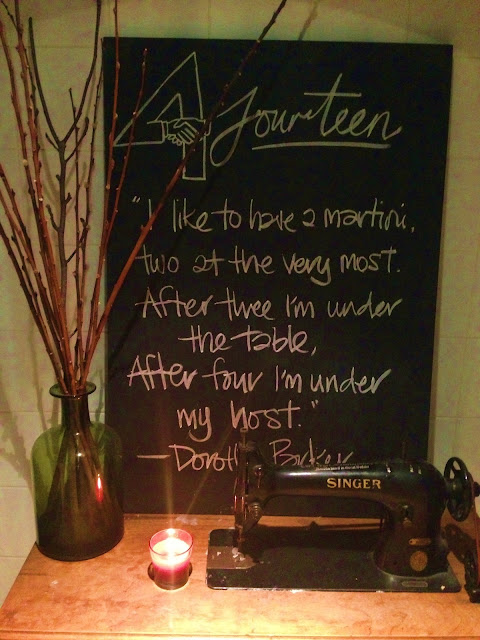 4 fourteen
"I like to have a martini,
two at the very most.
After three I'm under
the table,
After four I'm under
my host."
— Dorothy Parker
SINGER